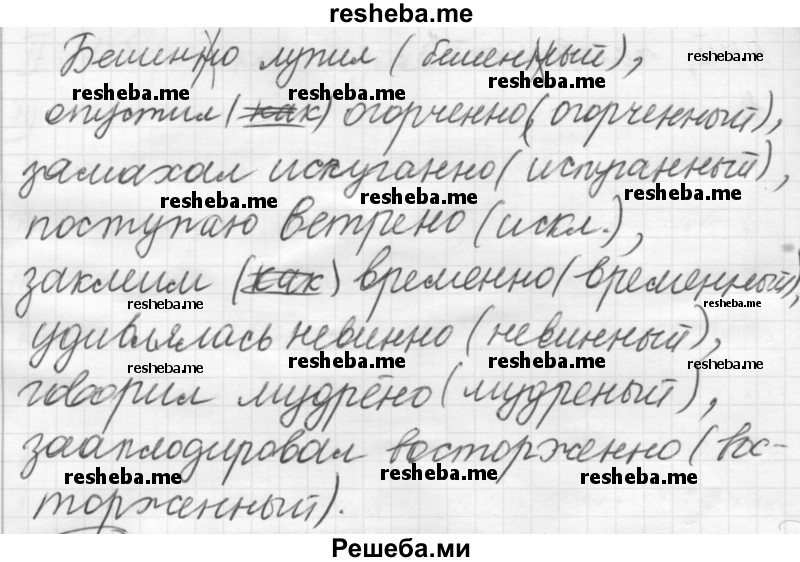 resheba.me
Бешенно лупил (бешенный), resheba.me
resheba.me resheba.me resheba.me
опустил (как) огорченно (огорченный),
замахал испуганно (испуганный),
resheba.me resheba.me resheba.me
поступаю ветрено (искл.),
заклеим (как) временно (временный),
resheba.me resheba.me resheba.me resheba.me
удивлялась невинно (невинный),
resheba.me resheba.me resheba.me
говорил мудрёно (мудреный),
зааплодировал восторженно (вос-
resheba.me resheba.me resheba.me
торженный).
Решеба.ми